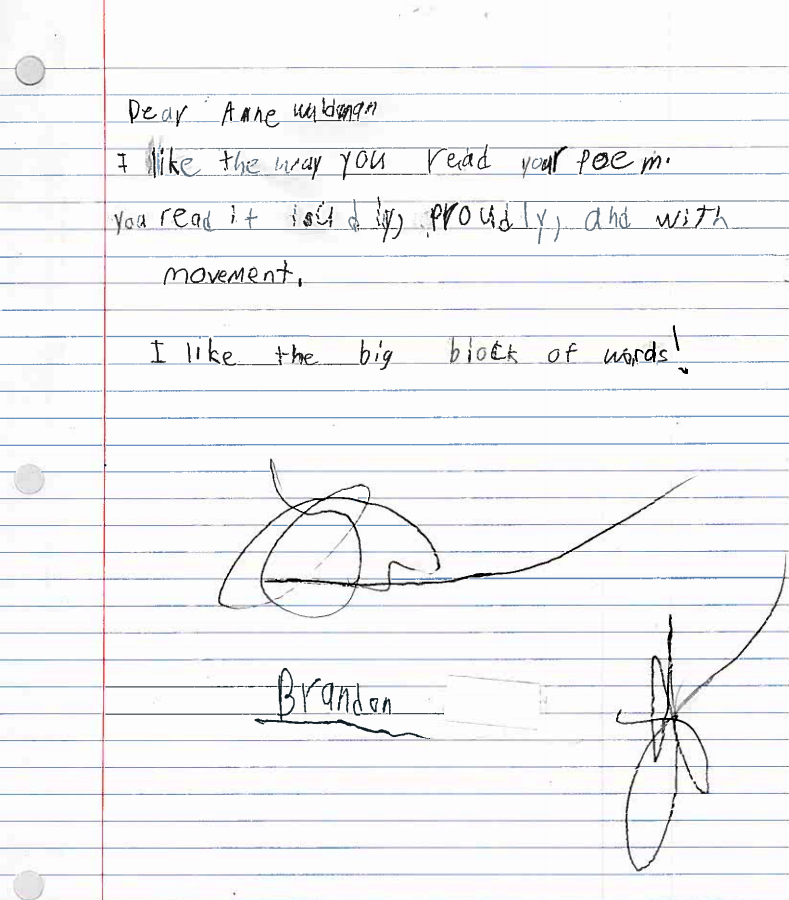 Dear Anne waldman
I like the way you read your poem.
you read it loudly, proudly, and with
movement.
I like the big block of words!
Brandon